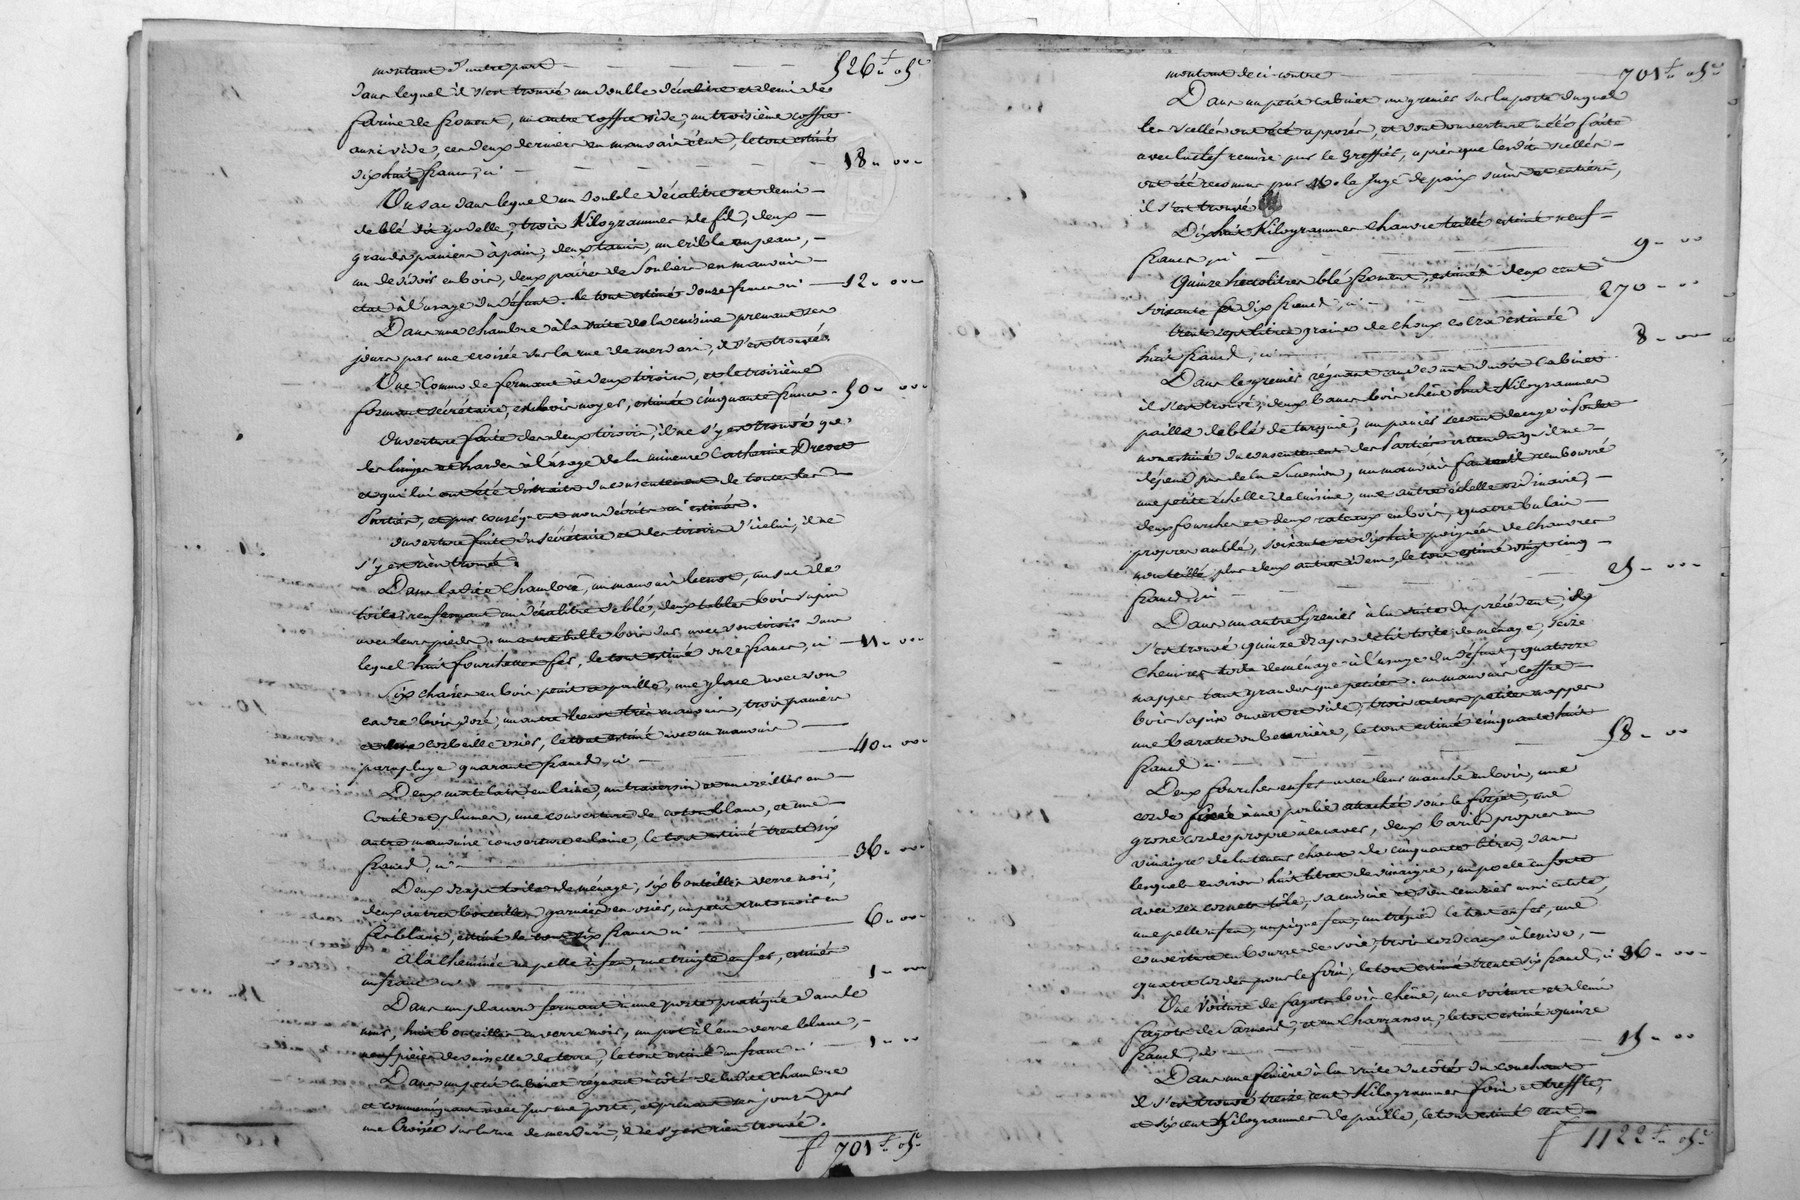 montant d'autre part 526 f 05 c
dans lequel il s'est trouvé un double décalitre et demi de
farine de froment, un autre coffre vide, un troisième coffre
aussi vide, ces deux derniers en mauvais état, le tout estimé
dix huit francs, ci 18 - 00
Un sac dans lequel un double décalitre et demi
de blé de godelle, trois Kilogrammes de fil, deux
grands paniers à pain, deux tamis, un crible en peau,
un dévidoir en bois, deux paires de souliers en mauvais
état à l'usage du défunt. le tout estimé douze francs ci 12 - 00
Dans une chambre à la suite de la cuisine prenant ses
jours par une croisée sur la rue de , il s'est trouvé
Une Commode fermant à deux tiroirs, et le troisième
formant sécrétaire, en bois noyer, estimée cinquante francs 50 - 00
Ouverture faite des deux tiroirs, il ne s'y est trouvé que
des linges et hardes à l'usage de la mineure Catherine Drevet
et qui lui ont été distraits du consentement de toutes les
Parties, et par conséquent non décrits ni estimés.
Ouverture faite du sécrétaire et des tiroirs d'icelui, il ne
s'y est rien trouvé.
Dans ladite Chambre, un mauvais , un sac de
toile renfermant un décalitre de blé, deux tables bois sapin
avec leurs pieds, un autre table bois dur avec son tiroir dans
lequel huit fourchettes fer, le tout estimé onze francs, ci 11 - 00
Six chaises en bois peint et paille, une glace avec son
cadre bois doré, un autre très mauvais, trois paniers
 corbeille osier, le tout estimé avec un mauvais
parapluye quarante francs, ci 40 - 00
Deux matelats en laine, un traversin et un oreiller en
Coutil et plumes, une couverture de coton blanc, et une
autre mauvaise couverture en laine, le tout estimé trente six
francs, ci 36 - 00
Deux draps toile de ménage, six bouteilles verre noir,
deux autres bouteilles garnies en osier, un petit entonnoir en
ferblanc, estimé le tout six francs ci 6 - 00
A la cheminée une pelle à feu, une tringle en fer, estimés
un franc ci 1 - 00
Dans un placard fermant à une porte pratiqué dans le
mur, huit bouteilles en verre noir, un pot à l'eau verre blanc,
neuf pièces de vaisselle de terre, le tout estimé un franc ci 1 - 00
Dans un petit cabinet régnant à côté de ladite chambre
et communiquant avec par une porte, et prenant ses jours par
une Croisée sur la rue de , il ne s'y est rien trouvé.
f 701 f 05 c
montant de ci-contre 701 f 05 c
Dans un petit cabinet au grenier sur la porte duquel
les scellés ont été apposés, et dont ouverture a été faite
avec la clef remise par le Greffier, après que lesdits scellés
ont été reconnus par M. le Juge de paix sains et entiers,
il s'est trouvé
Dix huit Kilogrammes chanvre teillé estimé neuf
francs, ci 9 - 00
Quinze hectolitres blé froment, estimés deux cent
soixante et dix francs, ci 270 - 00
trente sept litres graines de choux colza estimées
huit francs, ci 8 - 00
Dans le grenier régnant au devant dudit Cabinet
il s'est trouvé, deux bancs bois chêne huit Kilogrammes
paille de blé de turquie, un panier
non estimé du consentement des Parties attendu qu'il ne
dépend pas de la Succession, un mauvais fauteuil rembourré
une petite échelle de cuisine, une autre échelle ordinaire,
deux fourches et deux rateaux en bois, quatre balais
propres au blé, soixante et dix huit poignées de chanvre
non teillé, plus deux autres idem, le tout estimé vingt cinq
francs, ci 25 - 00
Dans un autre Grenier à la suite du précédent, il
s'est trouvé quinze draps de lit toile de ménage, seize
Chemises toile de ménage à l'usage du défunt, quatorze
nappes tant grandes que petites. un mauvais coffre
bois sapin ouvert et vide, trois autres petites nappes
une baratte ou beurrière, le tout estimé cinquante huit
francs ci 58 - 00
Deux fourches en fer avec leur manche en bois, une
corde fixée à une poulie attachée sous le forjet, une
grosse corde propre à encaver, deux barils propres au
vinaigre de la teneur chacun de cinquante litres, dans
lesquels environ huit litres de vinaigre, un poele en fonte
avec ses cornets tôle, sa cuisine et son cendrier aussi en tôle,
une pelle à feu, un pique feu, un trépied le tout en fer, une
couverture en bourre de soie, trois cordeaux à lessive,
quatre cordes pour le foin, le tout estimé trente six francs, ci 36 - 00
Une Voiture de fagots bois chêne, une voiture et demi
fagots de sarment, et un Charranon, le tout estimé quinze
francs, ci 15 - 00
Dans une fenière à la suite du côté du couchant
il s'est trouvé treize cent Kilogrammes foin et treffle,
et six cent Kilogrammes de paille, le tout estimé cent
f 1122 f 05 c